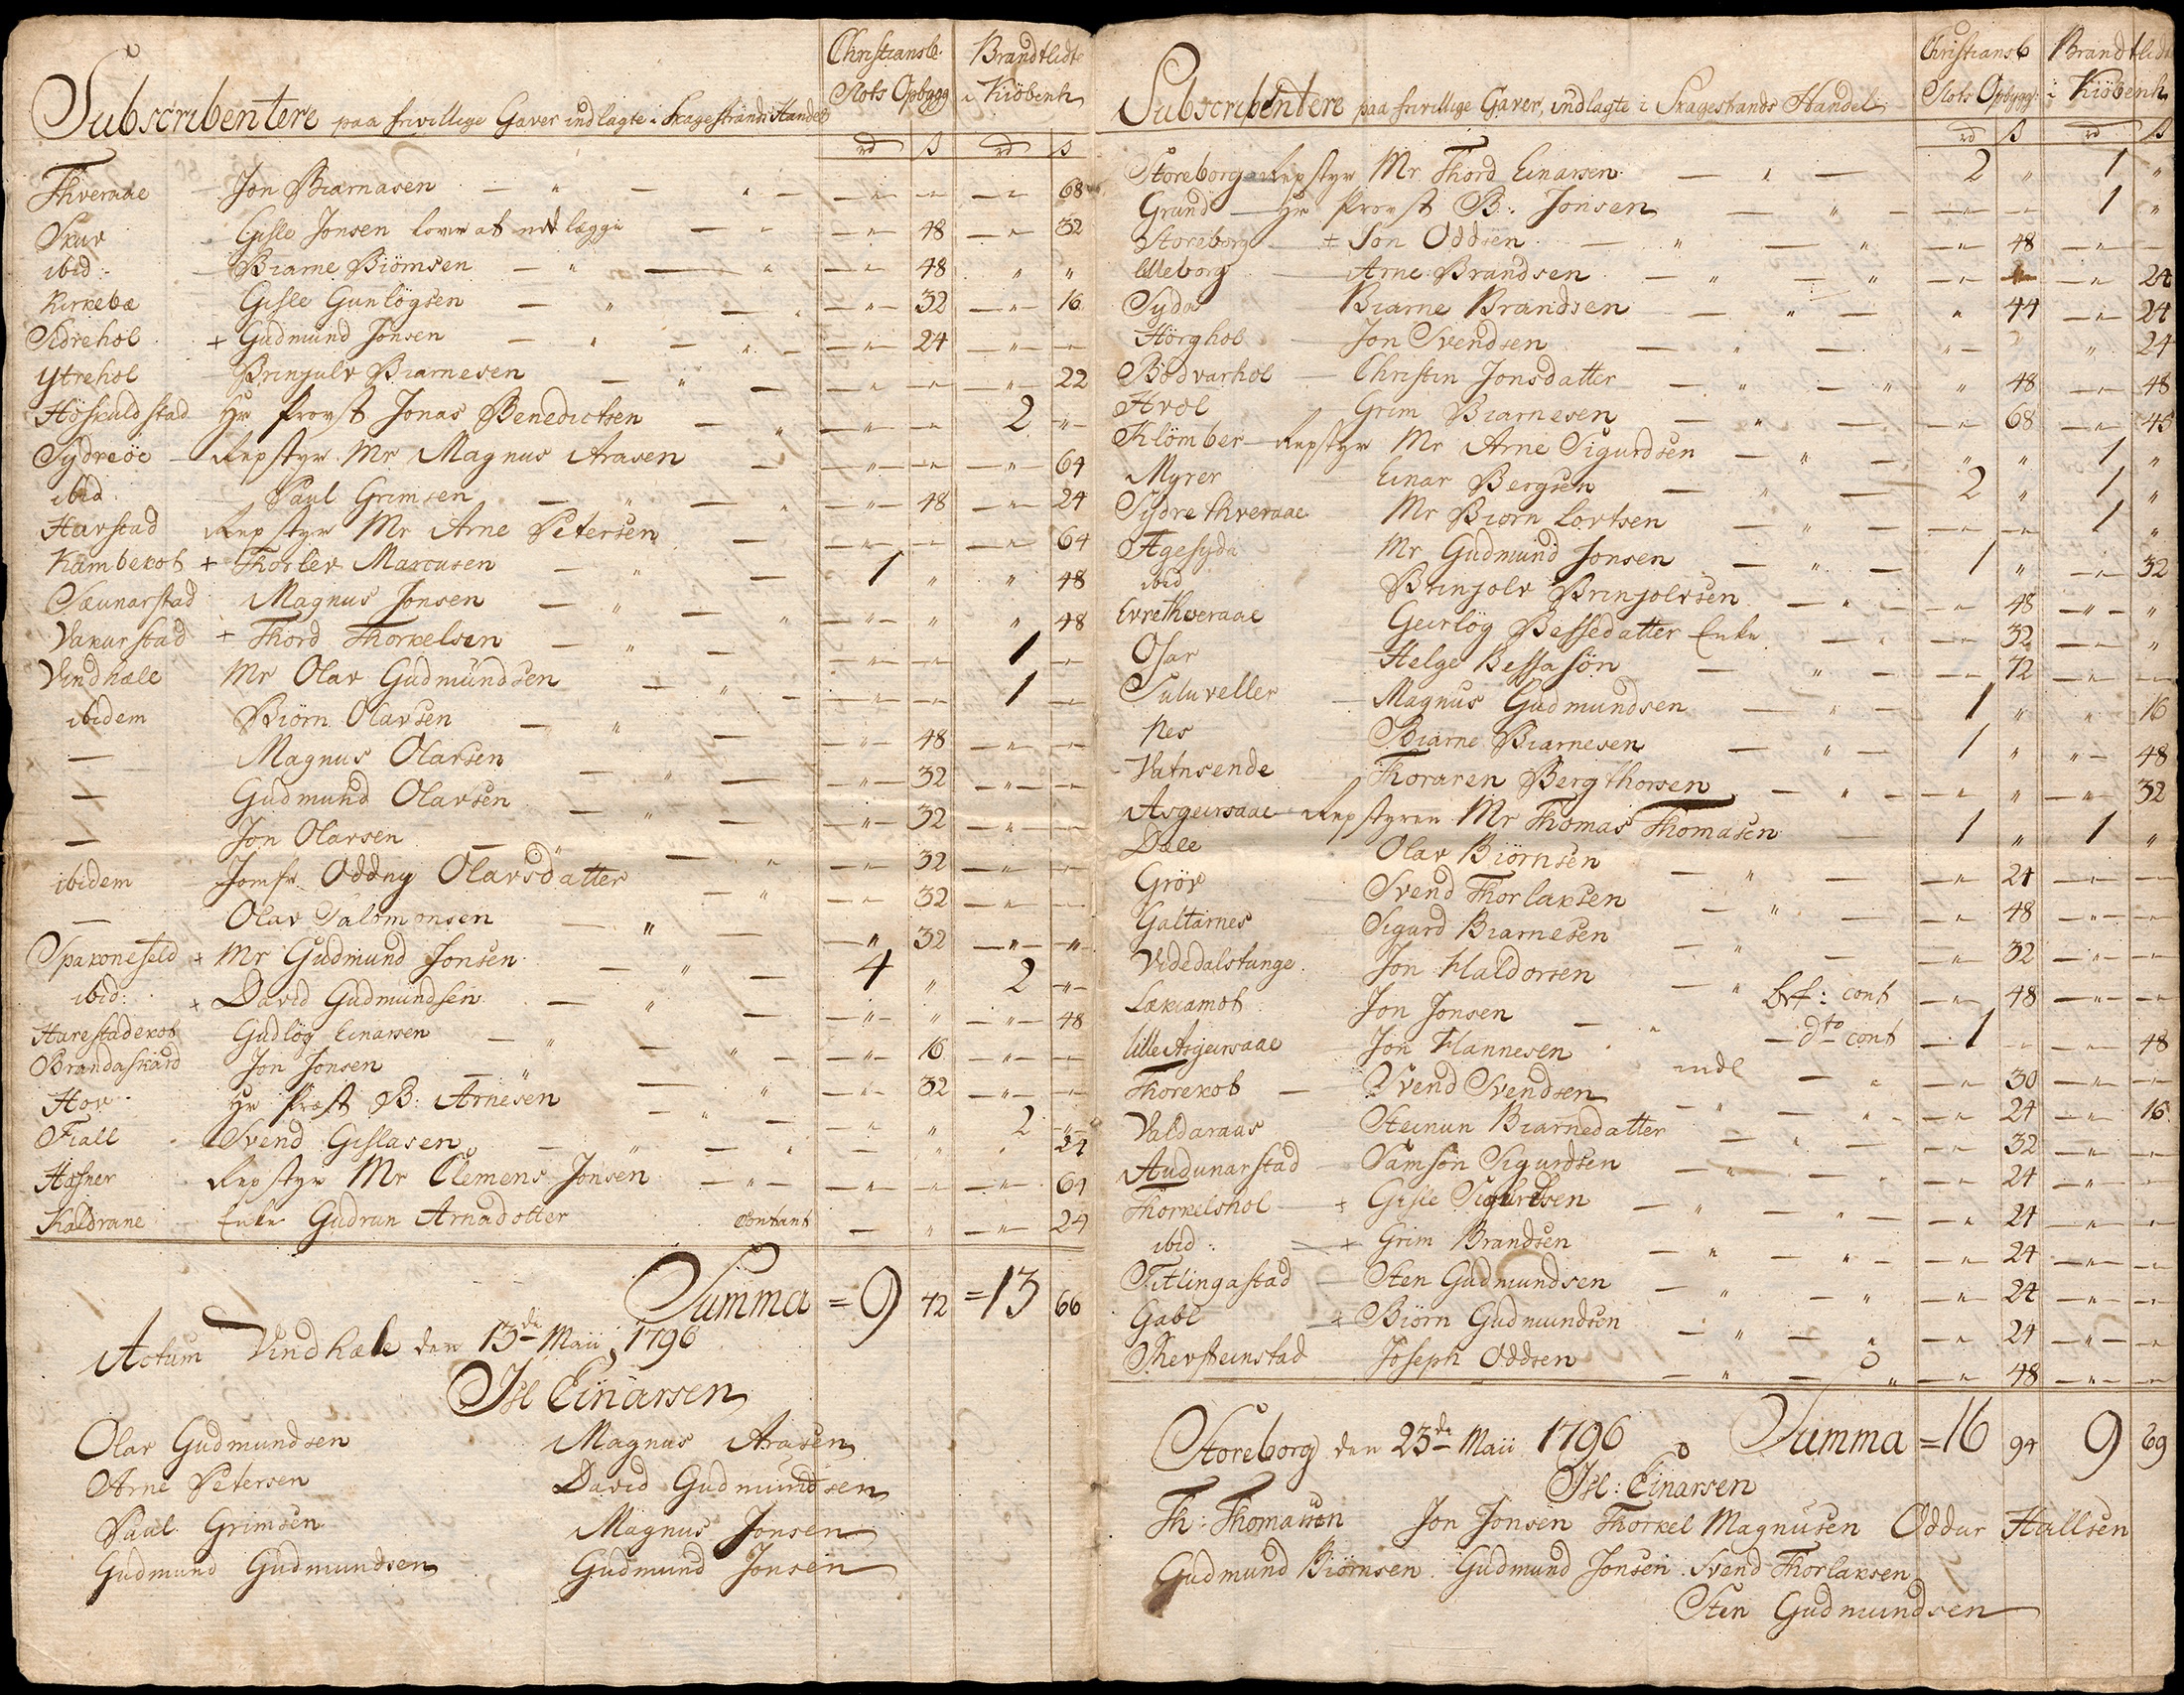 Christiansb. Brandtlidte
Slots Opbygg i Kiöbenh
Subscribentere paa frivillige Gaver indlagte i Skagestrands Handel
rd ß rd ß
Thveraae Jon Biarnasen — " — " — — " — — — " — 68
Skur Gisle Jonsen lover at nedlægge — " — — " — 48 — " — 32
ibid. Biarne Biörnsen — " — " — " — 48 " "
Kirkebæ Gisle Gunlögsen — " — — " — 32 — " — 16
Sidrehol + Gudmund Jonsen — " — " — — " — 24 — " — —
Ytrehol Brinjulv Biarnesen — " — — " — — — " — 22
Höskuldstad Hr Provst Jonas Benedictsen — " — " — — 2 — " —
Sydreöe Repstyr Mr Magnus Arasen — — " — — " — — " — 64
ibid Paul Grimsen — " — — " — 48 — " — 24
Havstad Repstyr Mr Arne Petersen — — " — — — " — 64
Kambekot + Thorlev Marcusen — " — 1 " " 48
Sæunarstad Magnus Jonsen — " — " — " — " " 48
Vakurstad + Thord Thorkelsen — " — — " — — " — 1 — " —
Vindhæle Mr Olav Gudmundsen — " — — " — — 1 —
ibidem Biörn Olavsen — " — — " — 48 — " — —
— Magnus Olavsen — " — — " — 32 — " — —
— Gudmund Olavsen — " — — " — 32 — " — —
— Jon Olavsen — " — " — " — 32 — " — —
ibidem Jomfr. Oddny Olavsdatter — " — " — 32 — " — —
— Olav Salomonsen — " — — " — 32 — " — "
Spakonefeld + Mr Gudmund Jonsen — " — 4 " 2 — " —
ibid: + David Gudmundsen — " — — " — " — " — 48
Harestadekot Gudlög Einarsen — " — " — — " — 16 — " — —
Brandaskard Jon Jonsen — " — " — " — 32 — " — —
Hov Hr Præst B: Arnesen — " — — " — " 2 — " —
Fiall Svend Gislasen — " — " — " — " " 24
Hafner Repstyr Mr Clemens Jonsen — " — — " — " — " — 64
Kaldrane Enke Gudrun Arnadotter contant — " — " — 24
Summa = 9 42 = 13 66
Actum Vindhæle den 13de Maii 1796
Isl Einarsen
Olav Gudmundsen Magnus Arasen
Arne Petersen David Gudmundsen
Paul Grimsen Magnus Jonsen
Gudmund Gudmundsen Gudmund Jonsen
Christiansb Brandtlidte
Slots Opbygg: i Kiöbenh
Subscribentere paa frivillige Gaver, indlagte i Skagestrands Handel
rd ß rd ß
Storeborg Repstyr Mr Thord Einarsen — " — 2 " 1 "
Grund — Hr Provst B. Jonsen — " — — " — — 1 "
Storeborg + Jon Oddsen — " — " — " — 48 — " — —
lilleborg Arne Brandsen — " — " — " — — " — 24
Syda Biarne Brandsen — " — " 44 — " — 24
Hörghol Jon Svendsen — " — " — " 24
Bödvarhol Christin Jonsdatter — " — " " 48 — " — 48
Hvol Grim Biarnesen — " — — " — 68 — " — 45
Klömber — Repstyr Mr Arne Sigurdsen — " — " " 1 "
Myrer Einar Bergsen — " — 2 " 1 "
Sydre thveraae Mr Biörn Lovtsen — " — — " — — 1 "
Ægesyda Mr Gudmund Jonsen — " — 1 " — " — 32
ibid Brinjolv Brinjolvsen — " — — " — 48 — " — "
Evrethveraae Geirlög Bessedatter Enke — " — 32 — " — "
Osar Helge Bessasön — " — — " — 72 — " — —
Suluveller Magnus Gudmundsen — " — 1 " " 16
Nes Biarne Biarnesen — " — 1 " " — 48
Vatnsende Thoraren Bergthorsen — " — — " — " — " — 32
Asgeirsaae Repstyren Mr Thomas Thomasen — 1 " 1 "
Dæle Olav Biörnsen — " — — " — 24 — " — —
Gröv Svend Thorlaksen — " — — " — 48 — " — —
Galtarnes Sigurd Biarnesen — " — — " — 32 — " — —
Videdalstunge Jon Haldorsen — " brf: cont — " — 48 — " — —
Lækiamot Jon Jonsen — " — dto cont — 1 — — " — 48
lille Asgeirsaae Jon Hannesen — " — — " — 30 — " — —
Thorekot Svend Svendsen — " — " — " — 24 — " — 16
Valdaraas Steinun Biarnedatter — " — " — 32 — " — —
Audunarstad Samson Sigurdsen — " — " — 24 — " — —
Thorkelshol + Gisle Sigurdsen — " — " — — " — 24 — " — —
ibid: + Grim Brandsen — " — " — — " — 24 — " — —
Titlingastad Sten Gudmundsen — " — " — " — 24 — " — —
Gabl + Biörn Gudmundsen — " — " — " — 24 — " — —
Thevsteinstad Joseph Oddsen — " — " — " — 48 — " — —
Storeborg den 23de Maii 1796 Summa = 16 94 9 69
Isl: Einarsen
Th: Thomassen Jon Jonsen Thorkel Magnusen Oddur Hallsen
Gudmund Biörnsen Gudmund Jonsen Svend Thorlaksen
Sten Gudmundsen